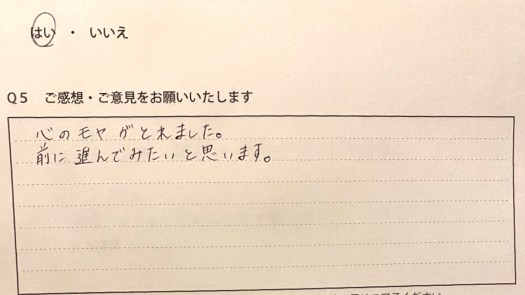 はい ・ いいえ
Q5 ご感想・ご意見をお願いいたします
心のモヤがとれました。
前に進んでみたいと思います。